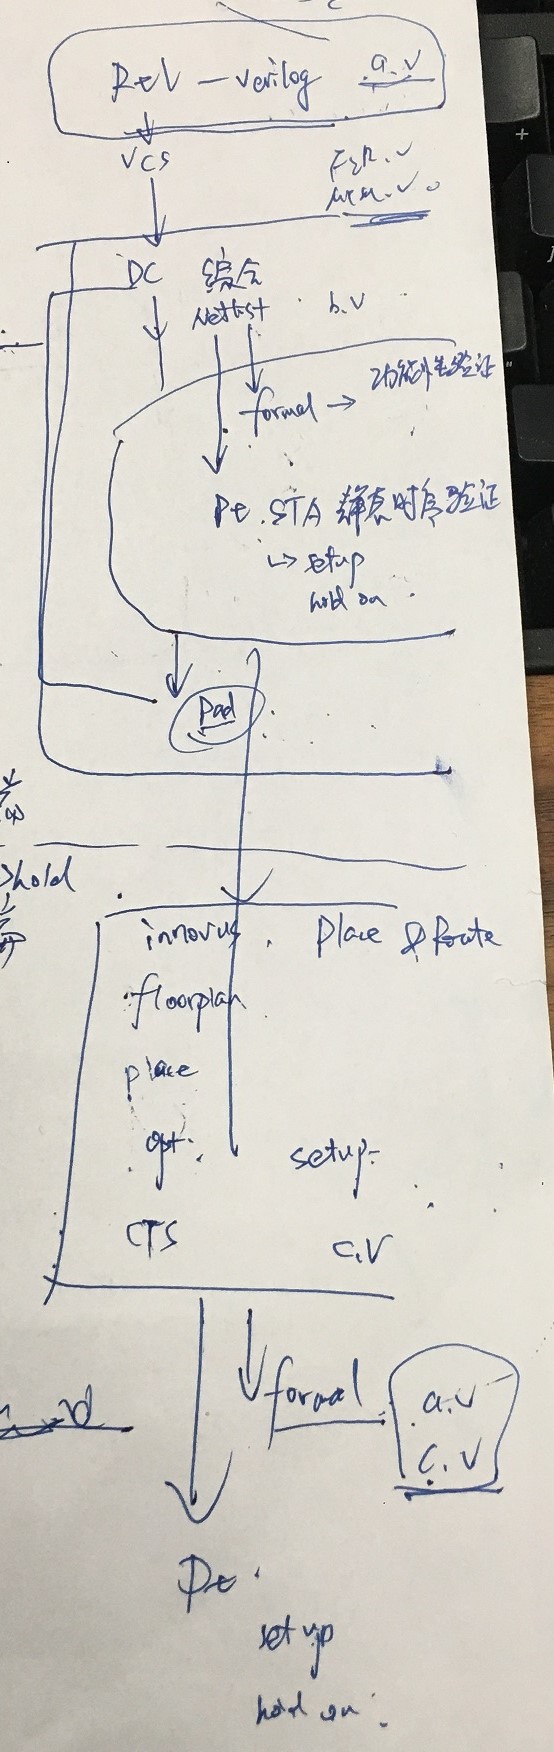 Rtl — verilog a.v
VCS
DC 综合
Netlist b.v
formal → 功能性验证
Pt . STA 静态时序验证
↳ setup
hold on .
Pad
hold
innovus . Place & Route
floorplan
place
opt . setup
CTS c.v
formal a.v
c.v
Pt .
setup
hold on .